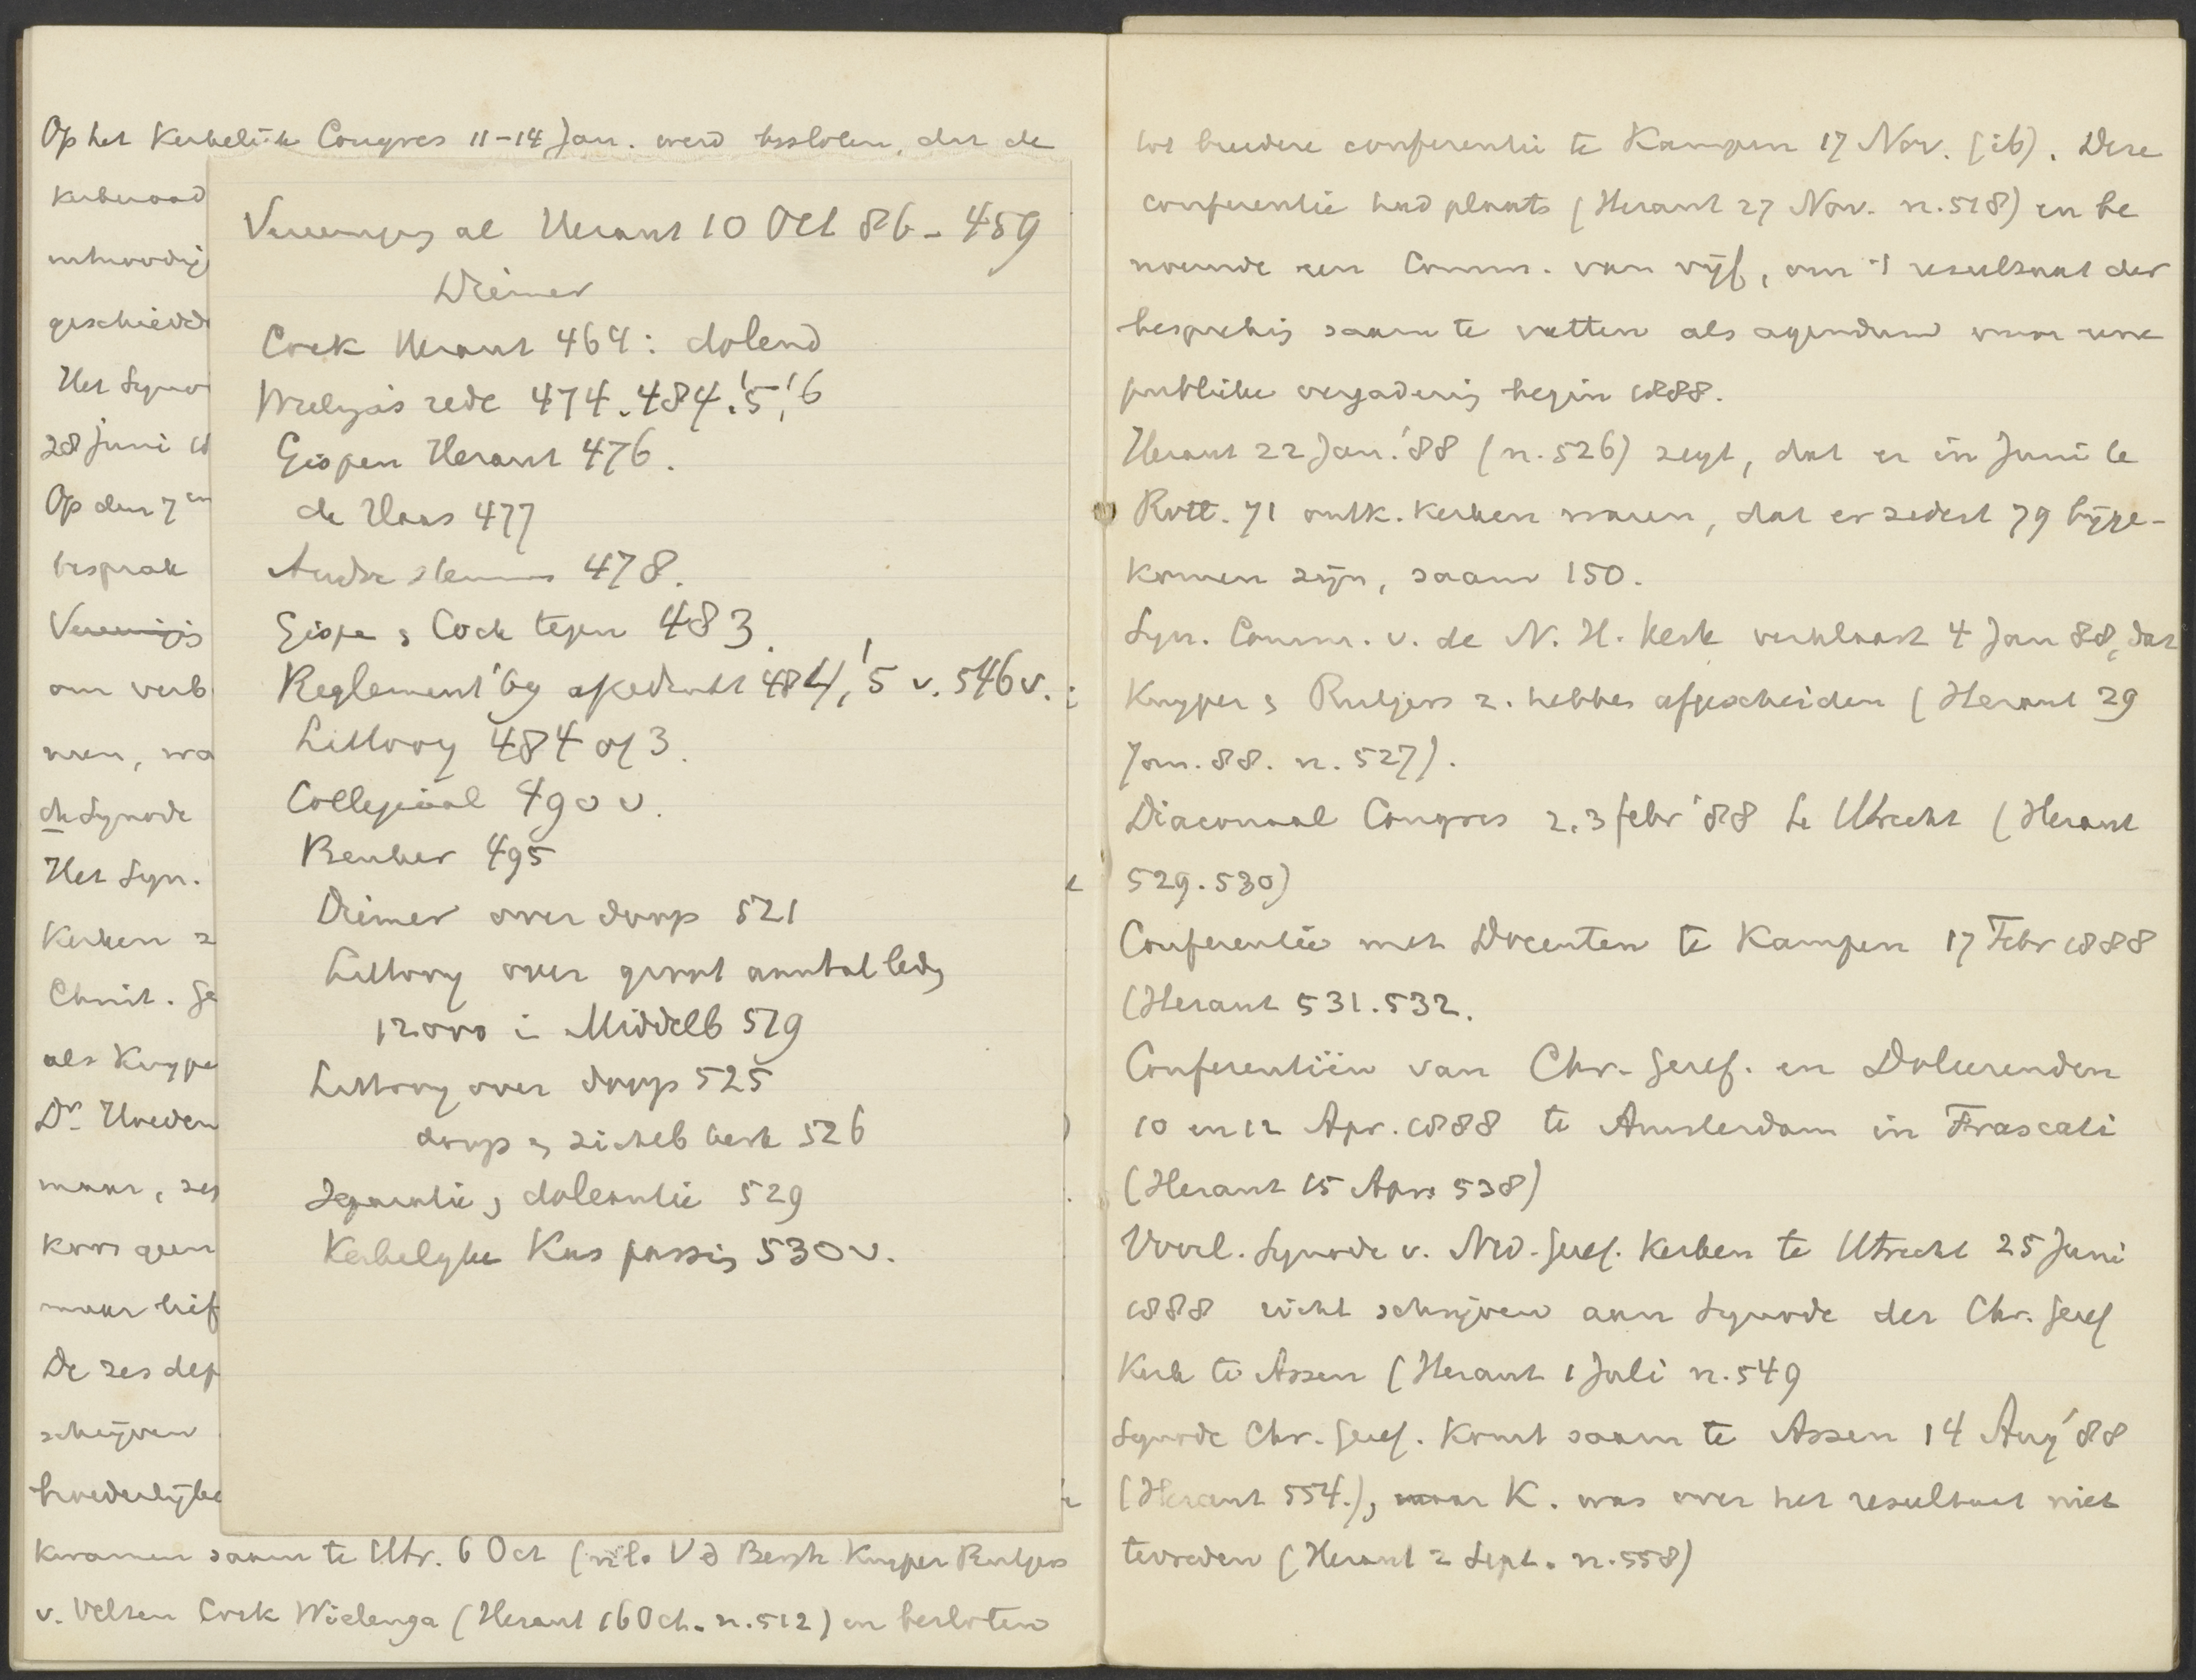 Op het Kerkelijk Congres 11-14 Jan. werd besloten, dat de
Kerkeraad
geschied
Het Syno
28 Juni 18
Op den 7en
besprak
Vereenigis
om verb
men, wa
de Synode
Het Syn.
Kerken z
Christ. Ge
als Kuype
Dr. Hoeden
maar, zes
koos geen
maar hief
De zes dep
schrijven
broederlijke
kwamen saam te Utr. 6 Oct (nl. Vd Bergh Kuyper Rutgers
v. Velzen Cock Wielenga (Heraut 16 Oct. n. 512) en besloten
Vereenigg al Heraut 10 Oct 86 - 459
Diemer
Cock Heraut 464: dolend
Wielga's rede 474. 484.'5,'6
Gispen Heraut 476.
de Haas 477
Andre stemm 478.
Gispe & Cock tegen 483.
Reglement '69 afgedrukt 484,'5 v. 546 v.
Littooy 484 of 3.
Collegiaal 490 v.
Beuker 495
Diemer over doop 521
Littooy over groot aantal ledg
12000 i Middelb 519
Littooy over doop 525
doop & zichtb kerk 526
Separatie & doleantie 529
Kerkelyke Kas passig 530 v.
tot breedere conferentie te Kampen 17 Nov. (ib). Deze
conferentie had plaats (Heraut 27 Nov. n. 518) en be
noemde een Comm. van vijf, om 't resultaat der
besprekig saam te vatten als agendum voor eene
publieke vergaderig begin 1888.
Heraut 22 Jan. '88 (n. 526) zegt, dat er in Juni te
Rott. 71 ontk. Kerken waren, dat er sedert 79 bijge-
komen zijn, saam 150.
Syn. Comm. v. de N. H. Kerk verklaart 4 Jan 88, dat
Kuyper & Rutgers z. hebben afgescheiden (Heraut 29
Jan. 88. n. 527).
Diaconaal Congres 2.3 febr '88 te Utrecht (Heraut
529.530)
Conferentie met Docenten te Kampen 17 Febr 1888
(Heraut 531.532.
Conferentiën van Chr. Geref. en Doleerenden
10 en 12 Apr. 1888 te Amsterdam in Frascati
(Heraut 15 Apr. 538)
Voorl. Synode v. Ned. Geref. Kerken te Utrecht 25 Juni
1888 richt schrijven aan Synode der Chr. Geref
Kerk te Assen (Heraut 1 Juli n. 549
Synode Chr. Geref. Komt saam te Assen 14 Aug '88
(Heraut 554.), maar K. was over het resultaat niet
tevreden (Heraut 2 Sept. n. 558)